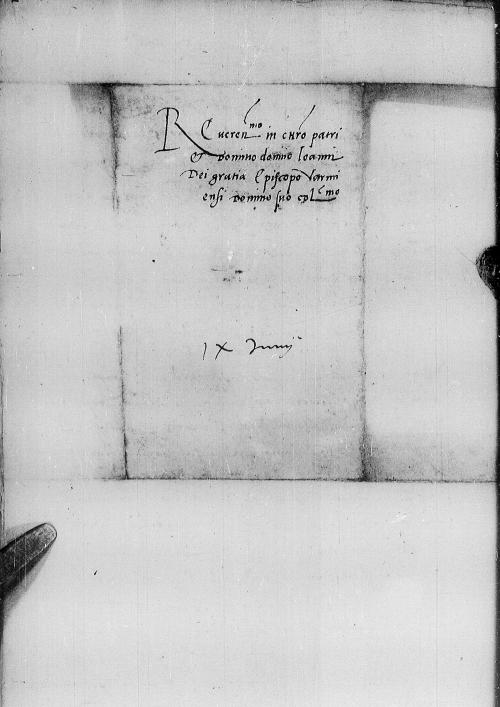 Reueren^mo in chro patri
et Domino domno Ioanni
Dei gratia Episcopo Varmi
ensi Domino suo col^mo
IX Iunij